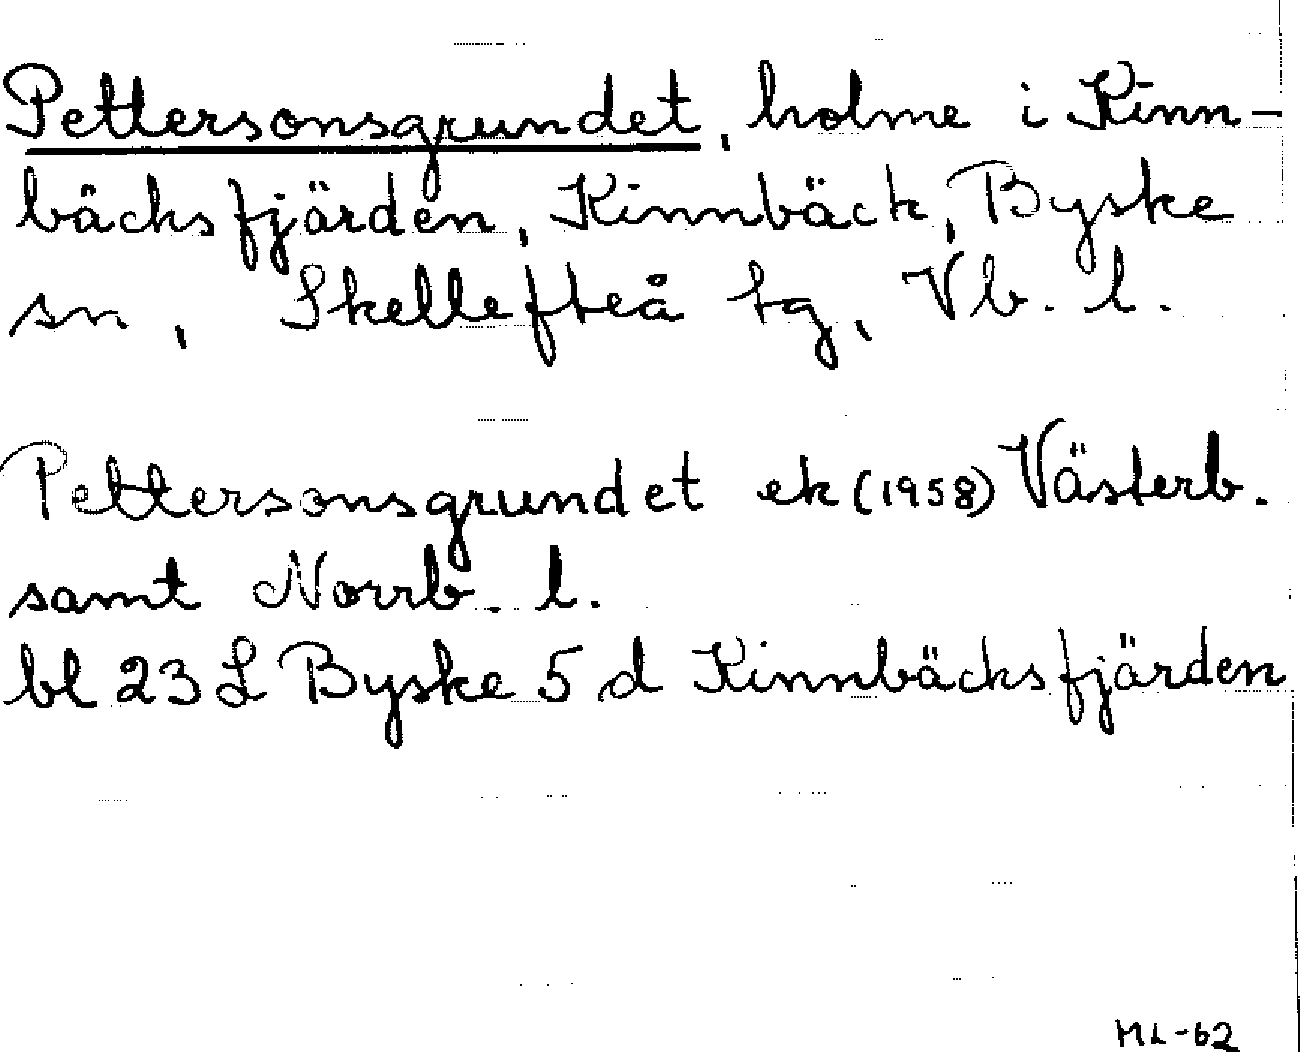 Pettersonsgrundet, holme i Kinn-
bäcksfjärden, Kinnbäck, Byske
sn, Skellefteå tg, Vb. l.
Pettersonsgrundet ek (1958) Västerb.
samt Norrb. l.
bl 23 L Byske 5 d Kinnbäcksfjärden
ML-62